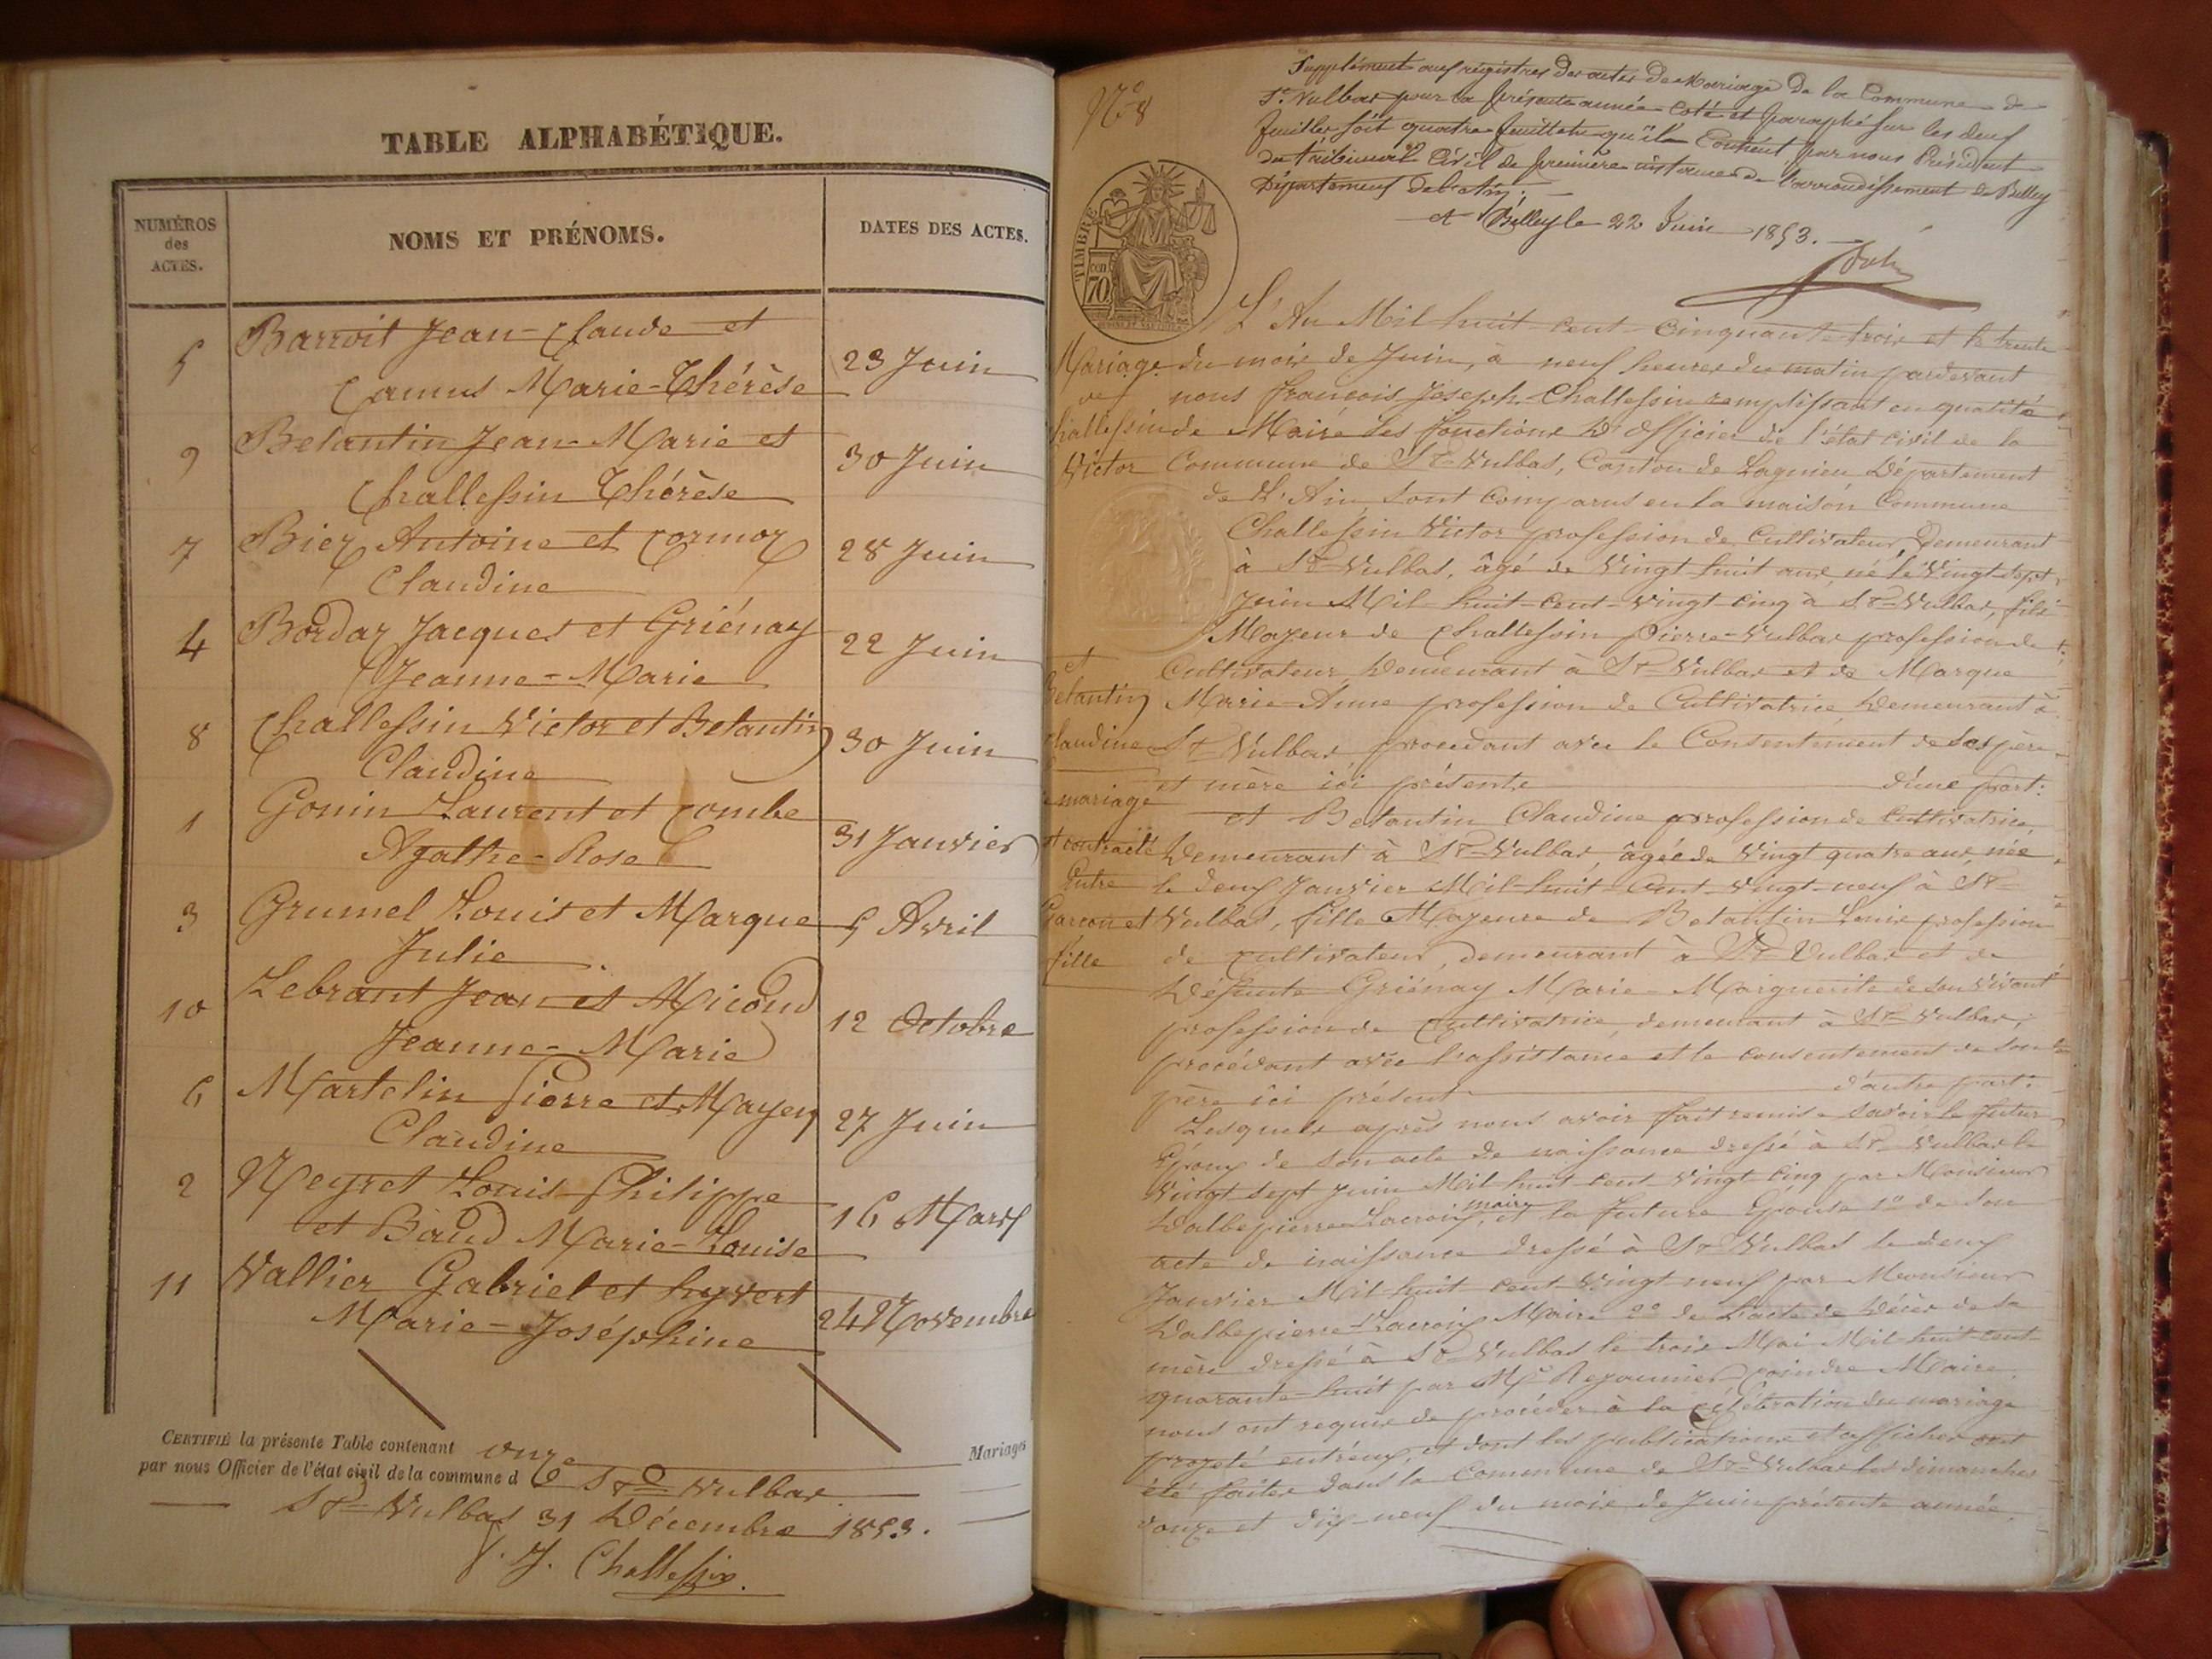 TABLE ALPHABÉTIQUE.
NUMÉROS
des
ACTES.
NOMS ET PRÉNOMS.
DATES DES ACTES.
5 Barroit Jean-Claude et
Camus Marie-Thérèse 23 Juin
9 Betantin Jean-Marie et
Challessin Thérèse 30 Juin
7 Biez Antoine et Cormoz
Claudine 28 Juin
4 Bordaz Jacques et Griénay
Jeanne-Marie 22 Juin
8 Challessin Victor et Betantin
Claudine 30 Juin
1 Gonin Laurent et Combe
Agathe-Rose 31 Janvier
3 Grumel Louis et Marque
Julie 5 Avril
10 Lebrant Jean et Micoud
Jeanne-Marie 12 Octobre
6 Martelin Pierre et Mayen
Claudine 27 Juin
2 Neyret Louis-Philippe
et Baud Marie-Louise 16 Mars
11 Vallier Gabriel et hyvert
Marie-Joséphine 24 Novembre
CERTIFIÉ la présente Table contenant onze Mariages
par nous Officier de l'état civil de la commune d e St Vulbas
St Vulbas 31 Décembre 1853.
f. J. Challessin.
No 8
Supplément aux régistres des actes de Mariage de la Commune de
St. Vulbas pour la présente année coté et paraphé sur les deux
feuilles soit quatre feuillets qu'il contient, par nous Président
du tribunal Civil de première instance de l'arrondissement de Belley
Département de l'Ain.
A Belley le 22 Juin 1853.
TIMBRE
70
L'An Mil huit-cent-cinquante trois et le trente
du mois de Juin, à neuf heures du matin pardevant
nous françois Joseph Challessin remplissant en qualité
de Maire des fonctions d'officier de l'état civil de la
Commune de St Vulbas, Canton de Lagnieu Département
de L'Ain, sont comparus en la maison Commune
Challessin Victor profession de Cultivateur, Demeurant
à St Vulbas, âgé de Vingt huit ans, né le Vingt-sept
Juin Mil huit-cent-vingt-cinq à St Vulbas, fils
Majeur de Challessin Pierre-Vulbas profession de
Cultivateur Demeurant à St Vulbas et de Marque
Marie-Anne profession de Cultivatrice Demeurant à
St Vulbas procédant avec le Consentement de ses père
et mère ici présents d'une part:
et Betantin Claudine profession de Cultivatrice,
Demeurant à St Vulbas, âgée de Vingt quatre ans, née
le deux Janvier Mil-huit-Cent-vingt-neuf à St
Vulbas, fille Majeure de Betantin Louis profession
de cultivateur, demeurant à St Vulbas et de
Défunte Griénay Marie-Marguerite de son vivant
profession de Cultivatrice, demeurant à St Vulbas,
procédant avec l'assistance et le consentement de son
père ici présent d'autre part.
Lesquels après nous avoir fait remise savoir le futur
Époux de son acte de naissance dressé à St Vulbas le
Vingt sept Juin Mil huit cent Vingt cinq par Monsieur
Dalbepierre-Lacroix, maire et la future Épouse 1o de son
acte de naissance dressé à St Vulbas le deux
Janvier Mil huit cent Vingt-neuf par Monsieur
Dalbepierre-Lacroix Maire 2o de l'acte de décès de sa
mère dressé à St Vulbas le trois Mai Mil huit cent
quarante-huit par Mr Maire
nous ont requis de procéder à la célébration du mariage
projeté entr'eux, et dont les publications et affiches ont
été faites dans la Commune de St Vulbas les dimanches
douze et dix-neuf du mois de Juin présente année.
Mariage
de
Challessin
Victor
et
Betantin
Claudine
mariage
contracté
Entre
Garcon et
fille